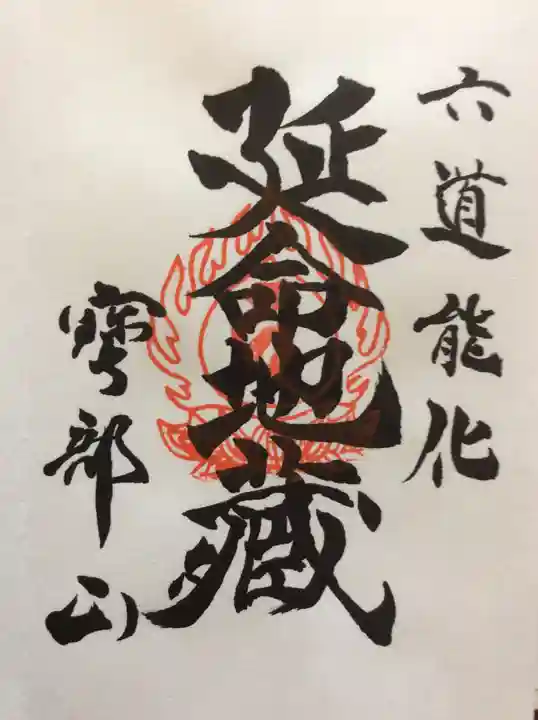 六道能化
延命地蔵
寳部山